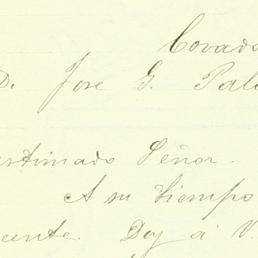 Covado
D. Jose G. Pala
estimado Señor.
A su tiempo
Doy á V.